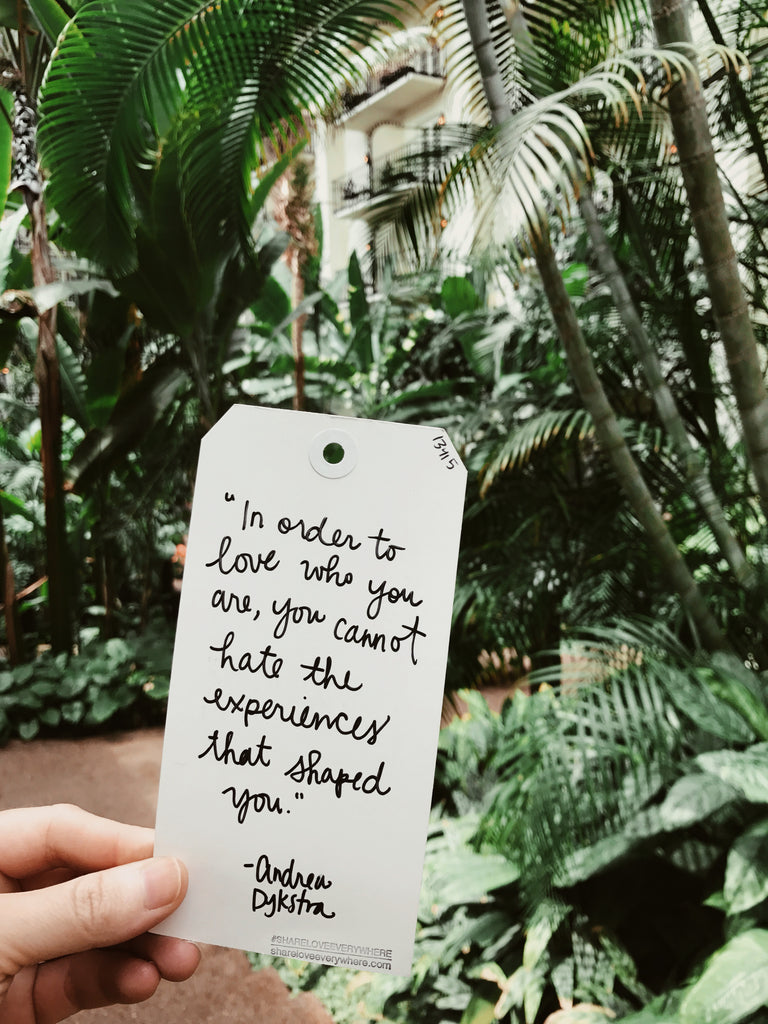 13415
"In order to
love who you
are, you cannot
hate the
experiences
that shaped
you."
-Andrea
Dykstra
#SHARELOVEEVERYWHERE
shareloveeverywhere.com